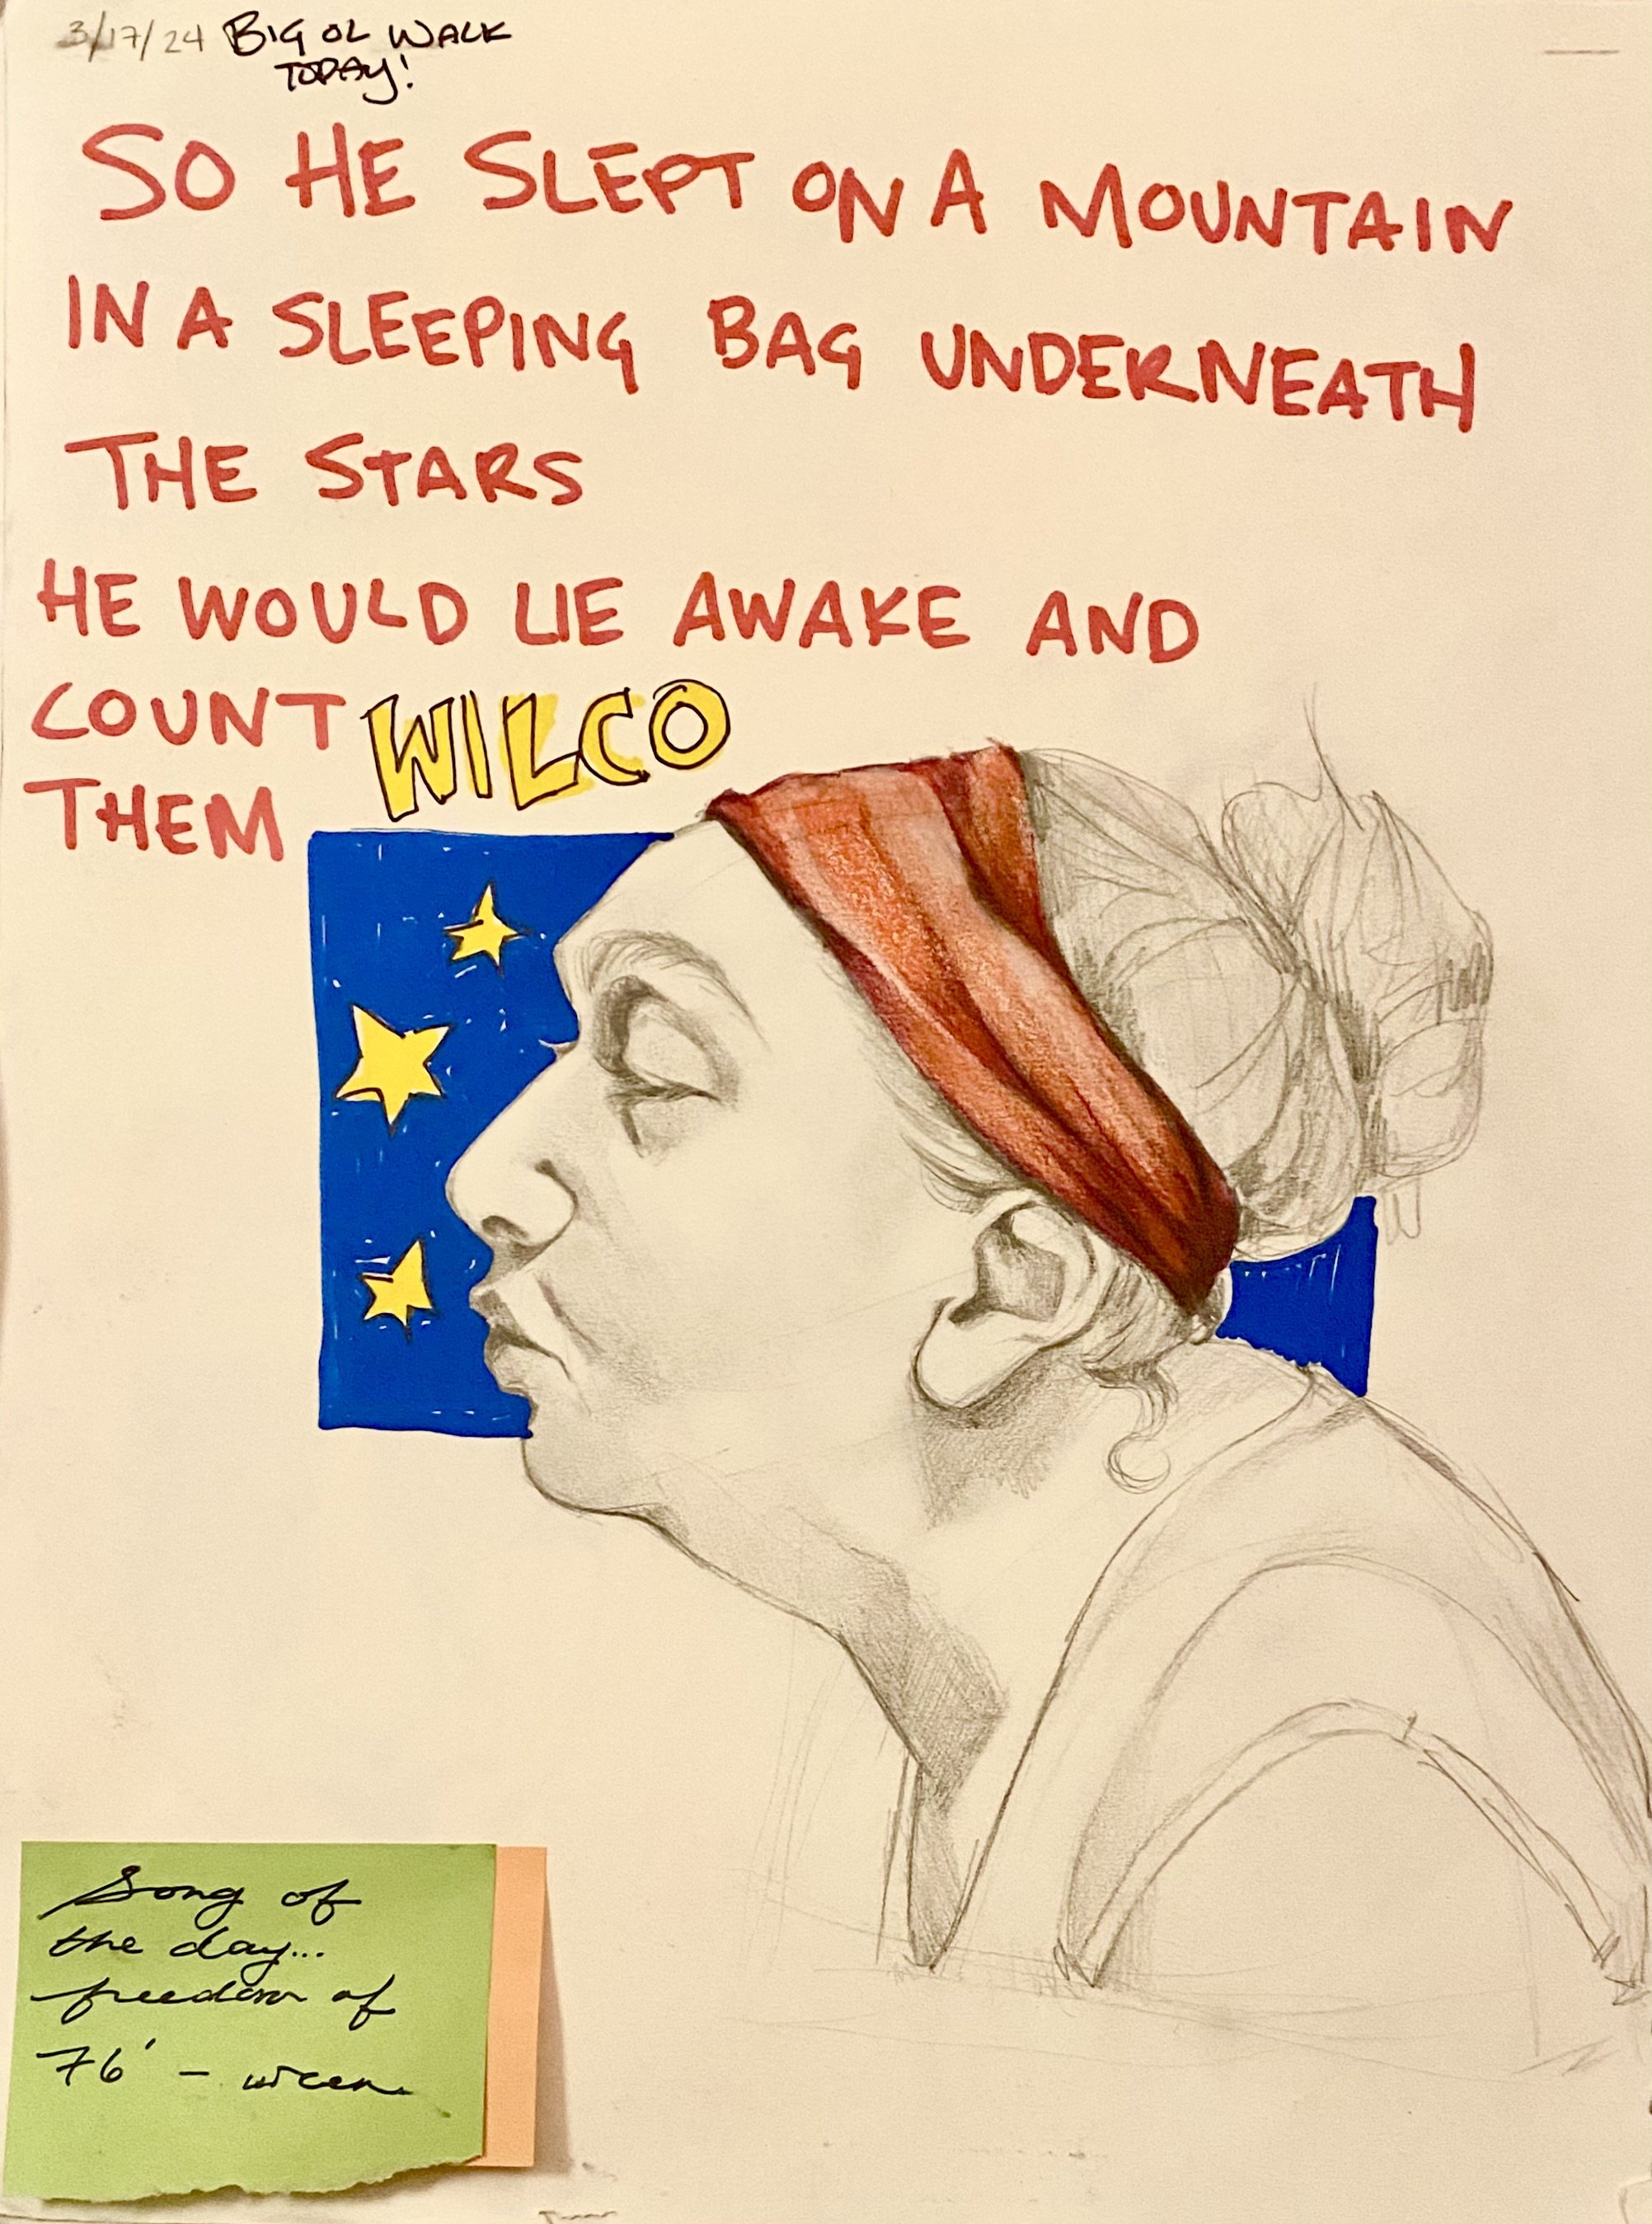 3/17/24 BIG OL WALK
TODAY!
SO HE SLEPT ON A MOUNTAIN
IN A SLEEPING BAG UNDERNEATH
THE STARS
HE WOULD LIE AWAKE AND
COUNT
THEM
WILCO
Song of
the day...
freedom of
76' - ween